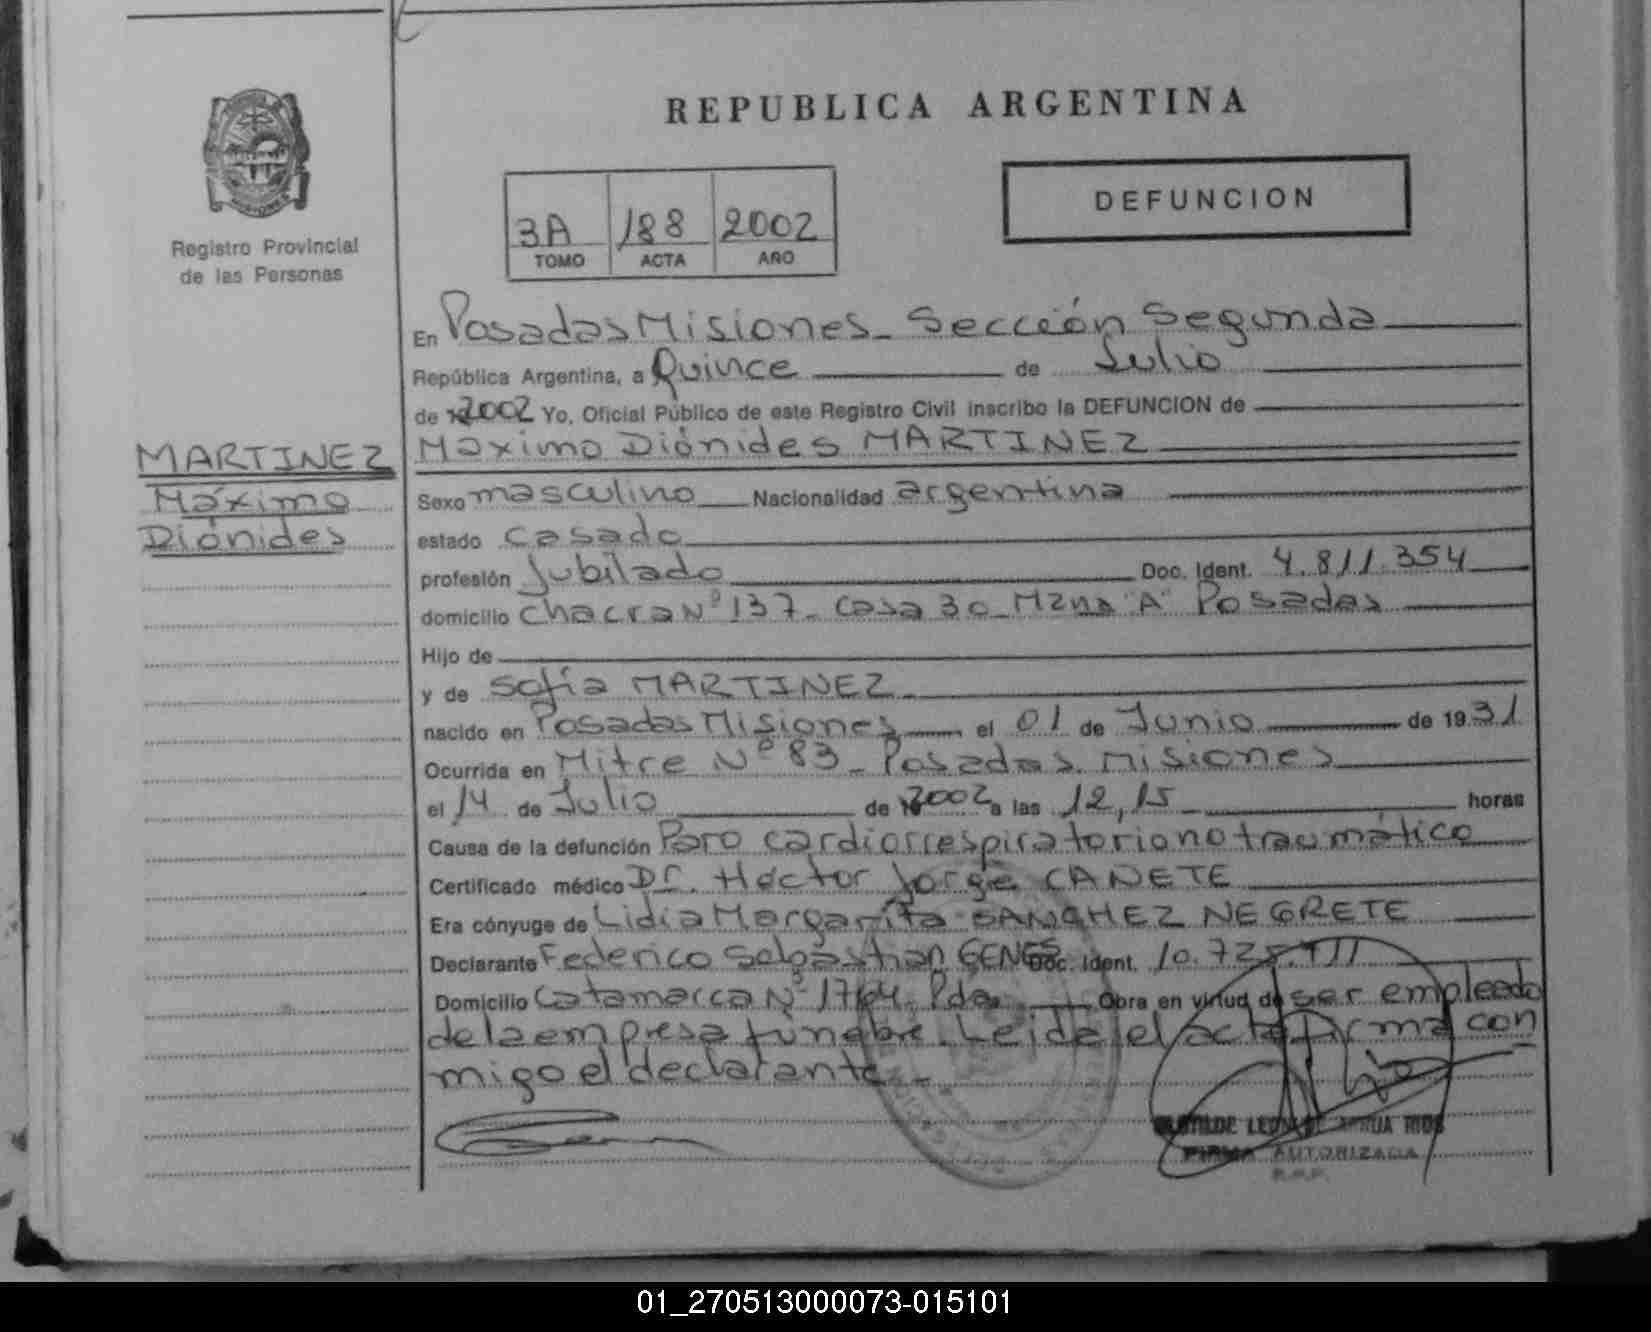 REPUBLICA ARGENTINA
DEFUNCION
3A 188 2002
TOMO ACTA AÑO
Registro Provincial
de las Personas
MARTINEZ
Máximo
Diónides
En Posadas Misiones - Sección Segunda
República Argentina, a Quince de Julio
de 2002 Yo, Oficial Público de este Registro Civil inscribo la DEFUNCION de
Maximo Diónides MARTINEZ
Sexo masculino Nacionalidad argentina
estado casado
profesión Jubilado Doc. Ident. 4.811.354
domicilio Chacra Nº 137 - Casa 30 - Mzna "A" Posadas
Hijo de
y de Sofía MARTINEZ
nacido en Posadas Misiones el 01 de Junio de 1931
Ocurrida en Mitre Nº 83 - Posadas Misiones
el 14 de Julio de 2002 a las 12,15 horas
Causa de la defunción Paro cardiorrespiratorio no traumático
Certificado médico Dr. Héctor Jorge CAÑETE
Era cónyuge de Lidia Margarita SANCHEZ NEGRETE
Declarante Federico GENES Doc. Ident.
Domicilio Catamarca Nº 1764 - Pdas. Obra en virtud de ser empleado
de la empresa fúnebre. Leída el acta firma con
migo el declarante.-
FIRMA AUTORIZADA
R.P.P.
01_270513000073-015101